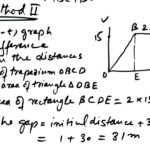 thod II
-t) graph
fference
n the distances
of trapezium OBCD
of triangle ODBE
area of rectangle BCDE = 2 x 15
he gap = initial distance + 3
= 1 + 30 = 31 m
V
15
B 2
O
E